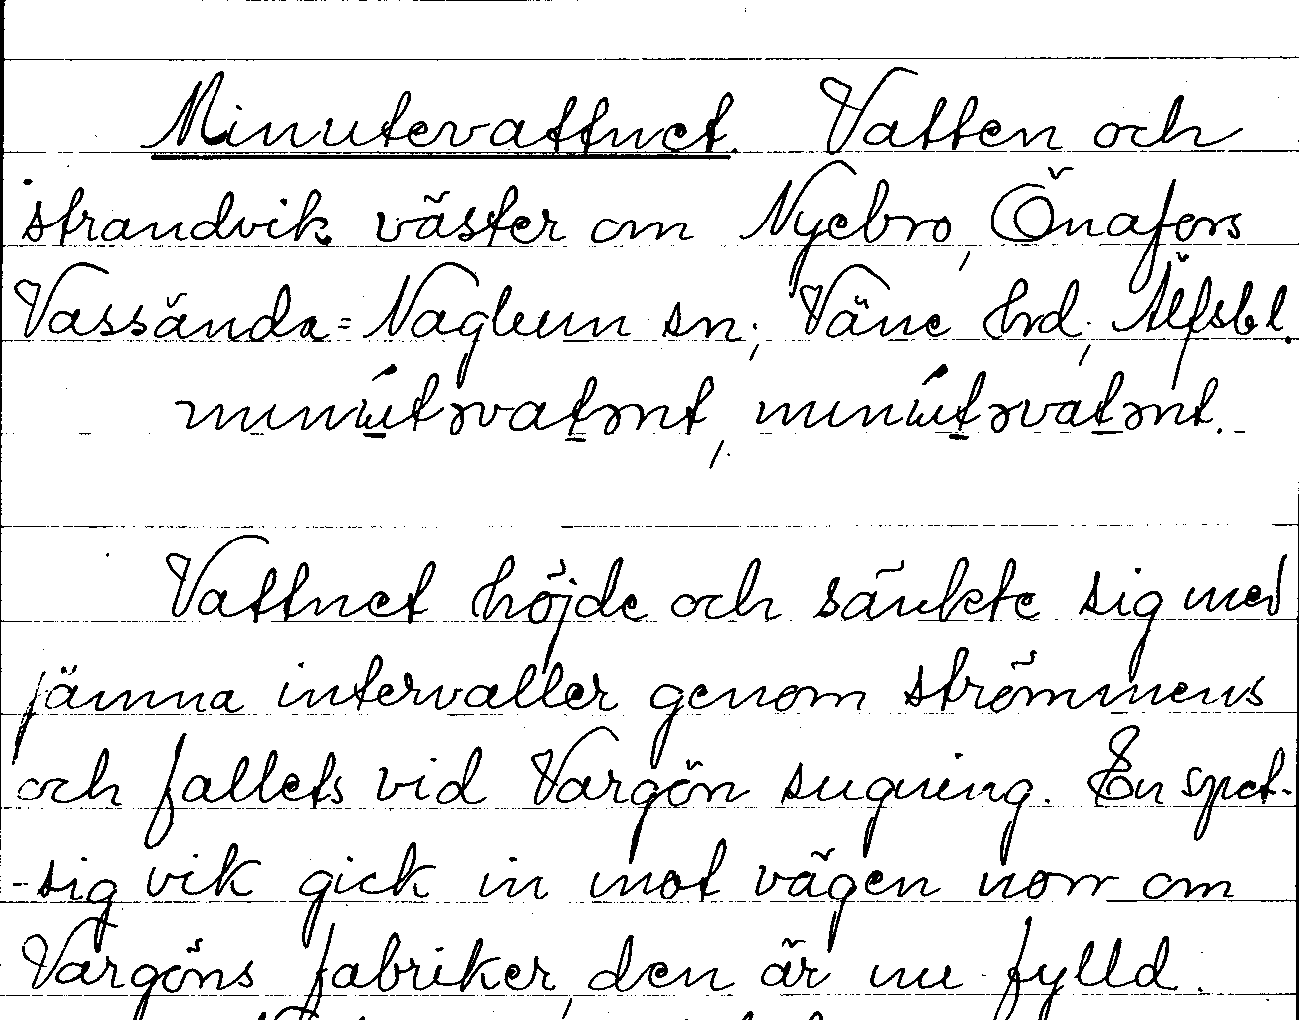 Minutevattnet. Vatten och
strandvik väster om Nyebro, Önafors
Vassända=Naglum sn; Väne hrd; Älfsbl.
Vattnet höjde och sänkte sig med
jämna intervaller genom strömmens
och fallets vid Vargön sugning. En spet-
-sig vik gick in mot vägen norr om
Vargöns fabriker, den är nu fylld.